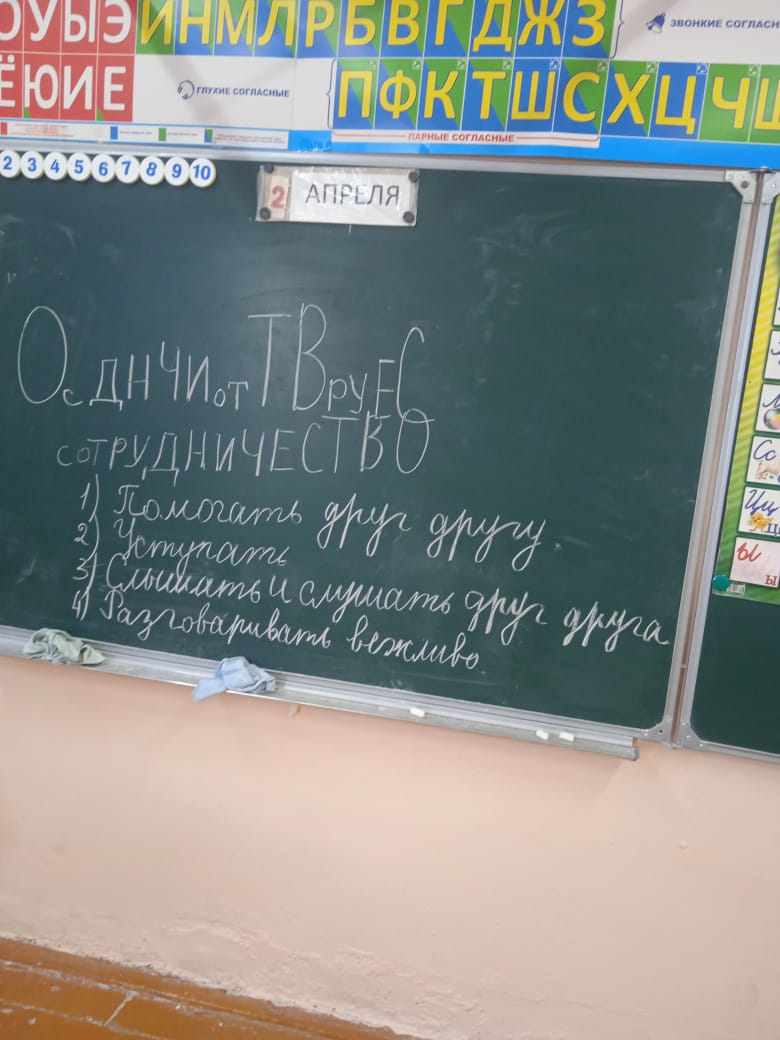 ОУЫЭИНМЛРБВГДЖЗ
ЗВОНКИЕ СОГЛАСН
ЁЮИЕ
ГЛУХИЕ СОГЛАСНЫЕ
ПФКТШСХЦЧЩ
ПАРНЫЕ СОГЛАСНЫЕ
2 3 4 5 6 7 8 9 10
2 АПРЕЛЯ
ОсДНЧИотТВруЕС
СОТРУДНИЧЕСТВО
1) Помогать друг другу.
2) Уступать
3) Слышать и слушать друг друга
4) Разговаривать вежливо
Сс
Цц
ы
ы